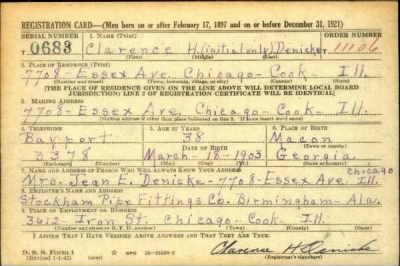 REGISTRATION CARD—(Men born on or after February 17, 1897 and on or before December 31, 1921)
SERIAL NUMBER 1. NAME (Print) ORDER NUMBER
0688 Clarence H. (initial only) Denicke 11106
(First) (Middle) (Last)
2. PLACE OF RESIDENCE (Print)
7708 - Essex Ave. Chicago - Cook - Ill.
(Number and street) (Town, township, village, or city) (County) (State)
[THE PLACE OF RESIDENCE GIVEN ON THE LINE ABOVE WILL DETERMINE LOCAL BOARD
JURISDICTION; LINE 2 OF REGISTRATION CERTIFICATE WILL BE IDENTICAL]
3. MAILING ADDRESS
7708 - Essex Ave. Chicago - Cook - Ill.
[Mailing address if other than place indicated on line 2. If same insert word same]
4. TELEPHONE 5. AGE IN YEARS 6. PLACE OF BIRTH
38 Macon
DATE OF BIRTH
3378 March - 18 - 1903 Georgia
(Exchange) (Number) (Mo.) (Day) (Yr.) (State or country)
7. NAME AND ADDRESS OF PERSON WHO WILL ALWAYS KNOW YOUR ADDRESS Chicago
Mrs. Jean E. Denicke - 7708 - Essex Ave. Ill.
8. EMPLOYER'S NAME AND ADDRESS
Stockham Pipe Fittings Co. Birmingham - Ala.
9. PLACE OF EMPLOYMENT OR BUSINESS
3612 - Iron St. Chicago - Cook - Ill.
(Number and street or R. F. D. number) (Town) (County) (State)
I AFFIRM THAT I HAVE VERIFIED ABOVE ANSWERS AND THAT THEY ARE TRUE.
D. S. S. Form 1
(Revised 1-1-42) (over) Clarence H. Denicke